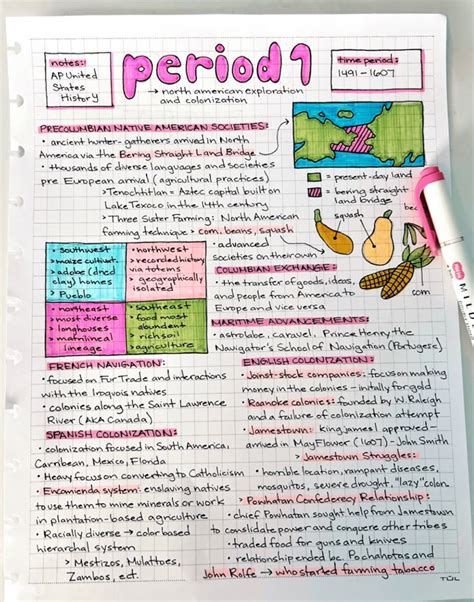 notes:
AP United
States
History
period 1
→ north american exploration
and colonization
time period:
1491-1607
PRECOLUMBIAN NATIVE AMERICAN SOCIETIES:
• ancient hunter-gatherers arrived in North
America via the Bering Straight Land Bridge
• thousands of diverse languages and societies
pre European arrival (agricultural practices)
> Tenochtitlan = Aztec capital built on
Lake Texoco in the 14th century
> Three Sister Farming: North American
farming technique → corn, beans, squash
• advanced
societies on their own
= present-day land
= bering straight
land bridge
squash
corn
• southwest
> maize cultivat.
> adobe (dried
clay) homes
> Pueblo
• northwest
> recorded history
via totems
> geographically
isolated
• northeast
> most diverse
> longhouses
> matrilineal
lineage
• southeast
> food most
abundent
> rich soil
> agriculture
COLUMBIAN EXCHANGE:
• the transfer of goods, ideas,
and people from America to
Europe and vice versa
MARITIME ADVANCEMENTS:
• astrolobe, caravel, Prince Henry the
Navigator's School of Navigation (Portugese)
FRENCH NAVIGATION:
• focused on Fur Trade and interactions
with the Iroquois natives
• colonies along the Saint Lawrence
River (AKA Canada)
SPANISH COLONIZATION:
• colonization focused in South America,
Carribean, Mexico, Florida
• Heavy focus on converting to Catholicism
• Encamienda system: enslaving natives
to use them to mine minerals or work
in plantation-based agriculture
• Racially diverse → color based
hierarchal system
> Mestizos, Mulattoes,
Zambos, ect.
ENGLISH COLONIZATION:
• Joinst-stock companies: focus on making
money in the colonies - initially for gold
• Roanoke colonies: founded by W. Raleigh
and a failure of colonization attempt
• Jamestown: king james I approved -
arrived in MayFlower (1607) - John Smith
> Jamestown Struggles:
• horrible location, rampant diseases,
mosquitos, severe drought, "lazy" colon.
> Powhatan Confederecy Relationship:
• chief Powhatan sought help from Jamestown
to consolidate power and conquere other tribes
• traded food for guns and knives
• relationship ended bc. Pochahotas and
John Rolfe → who started farming tabacco
TUL